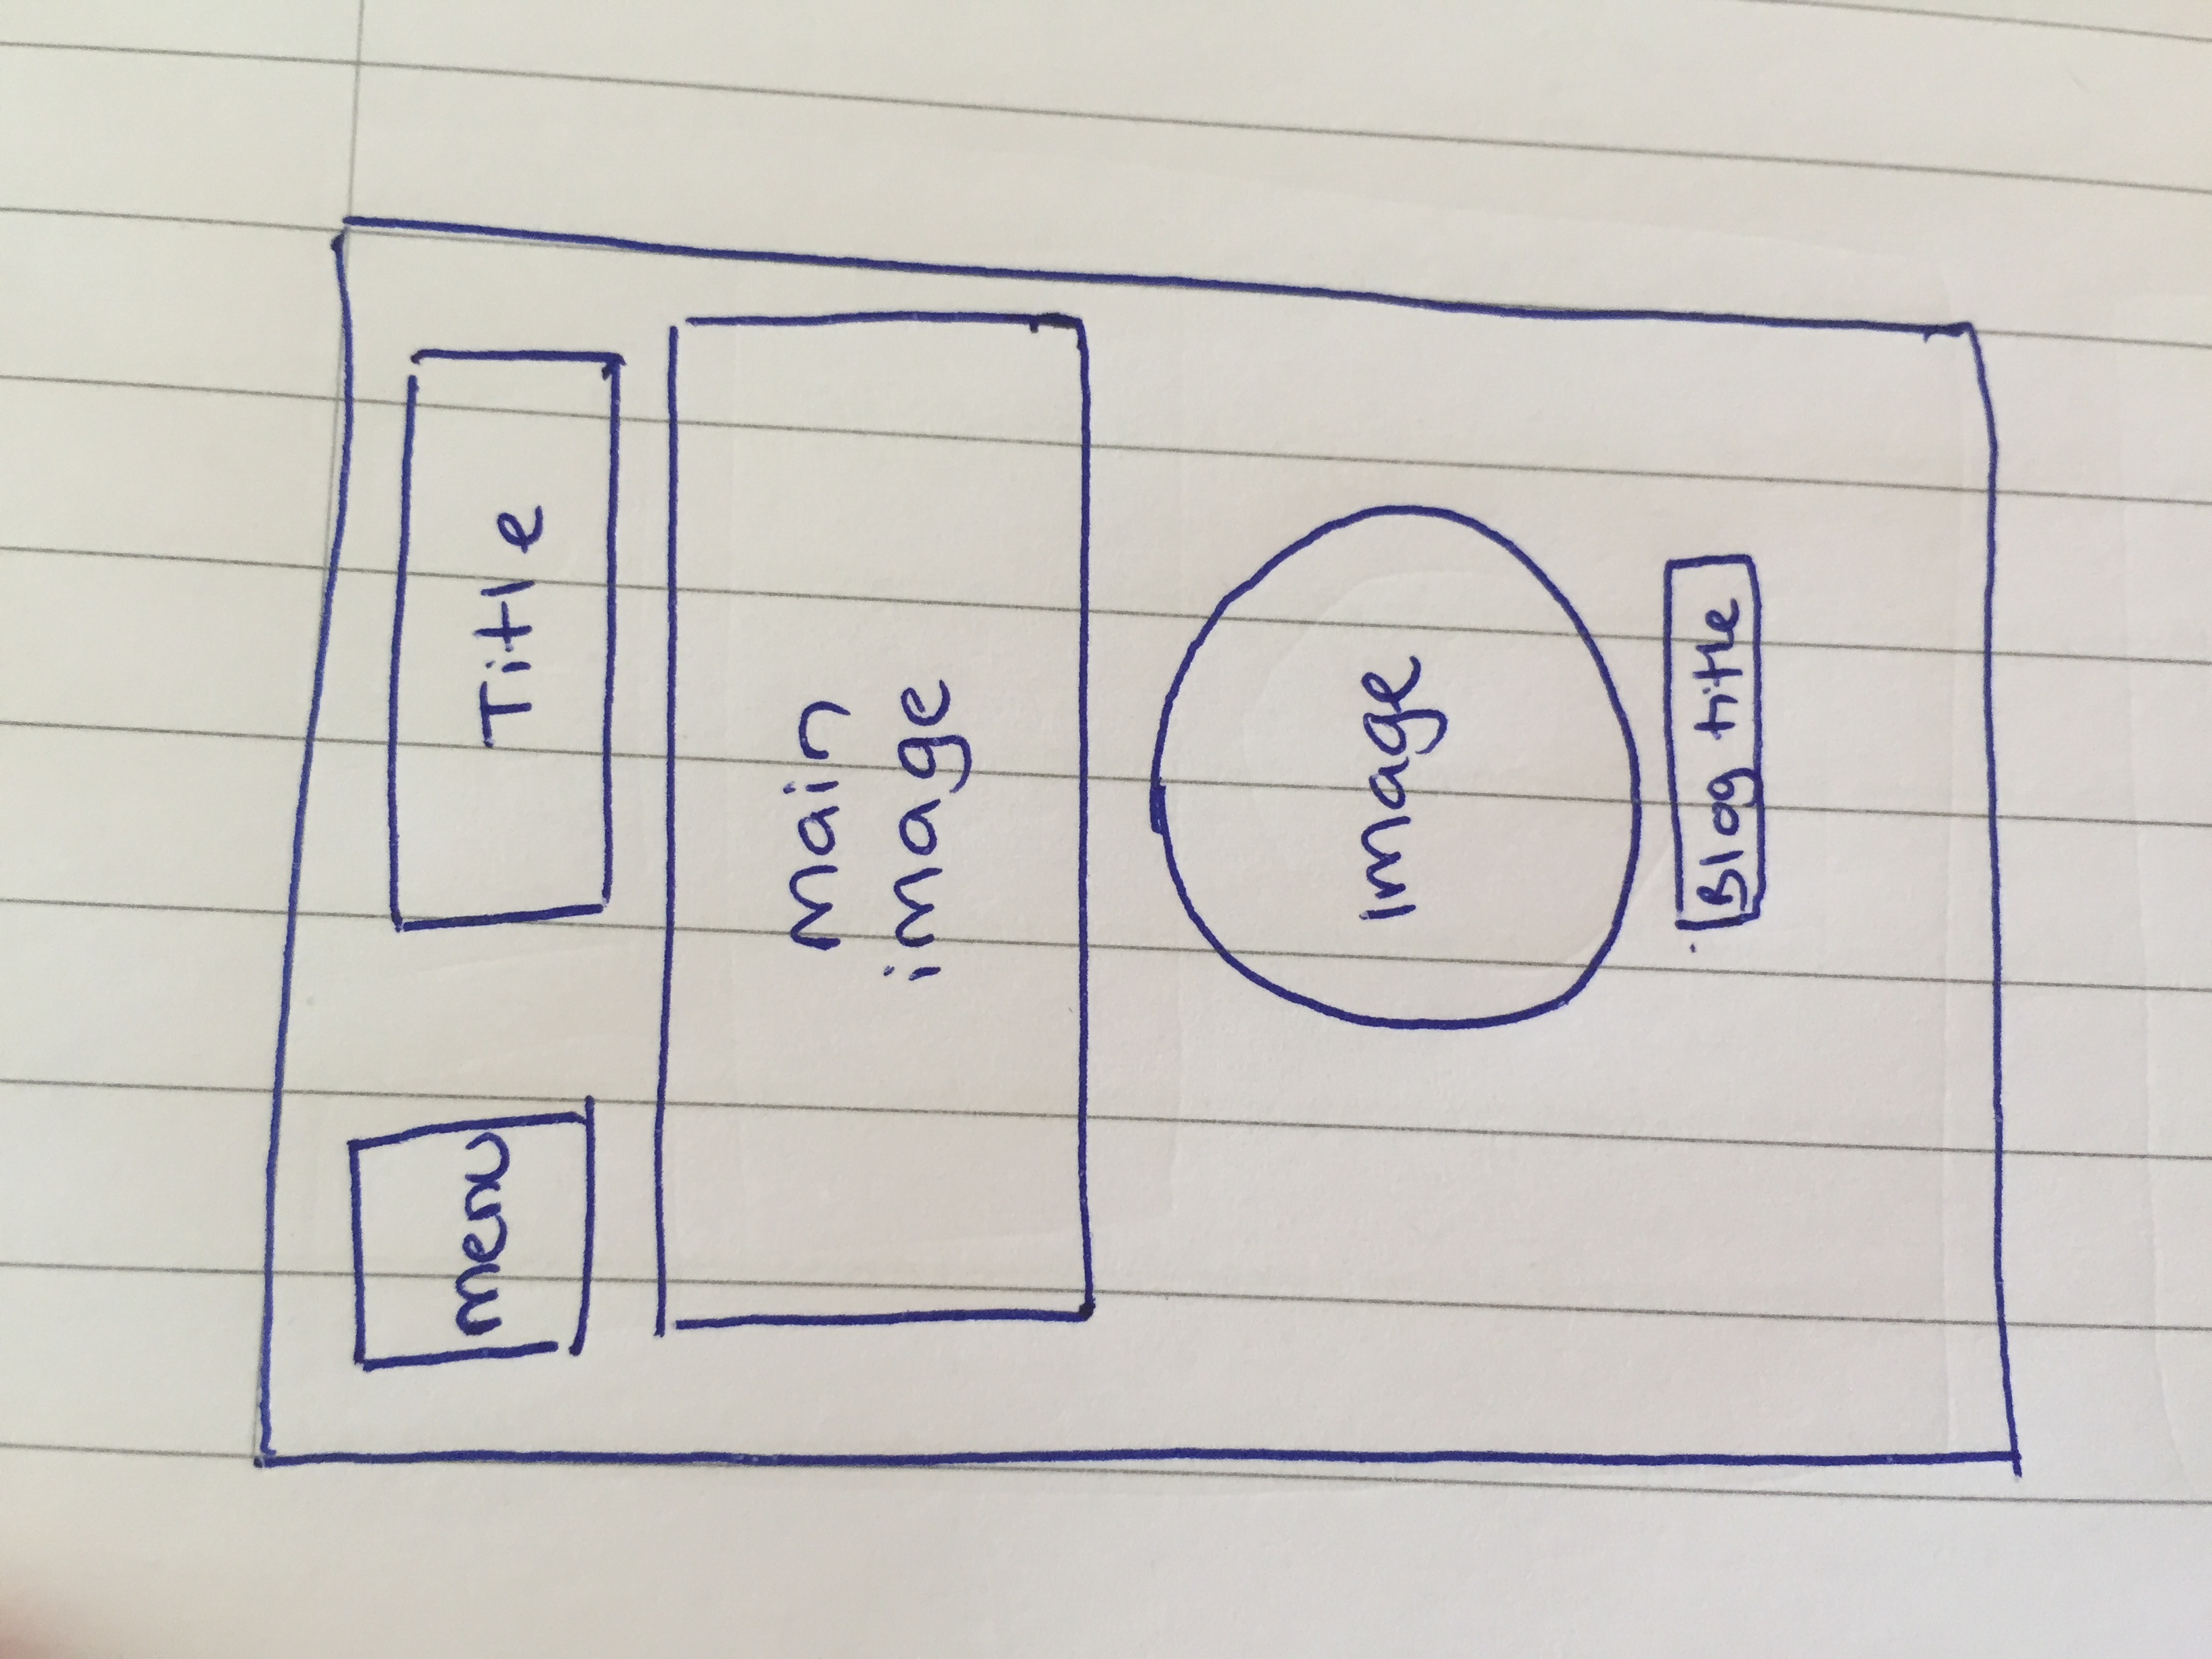 menu
Title
Main
image
image
Blog title